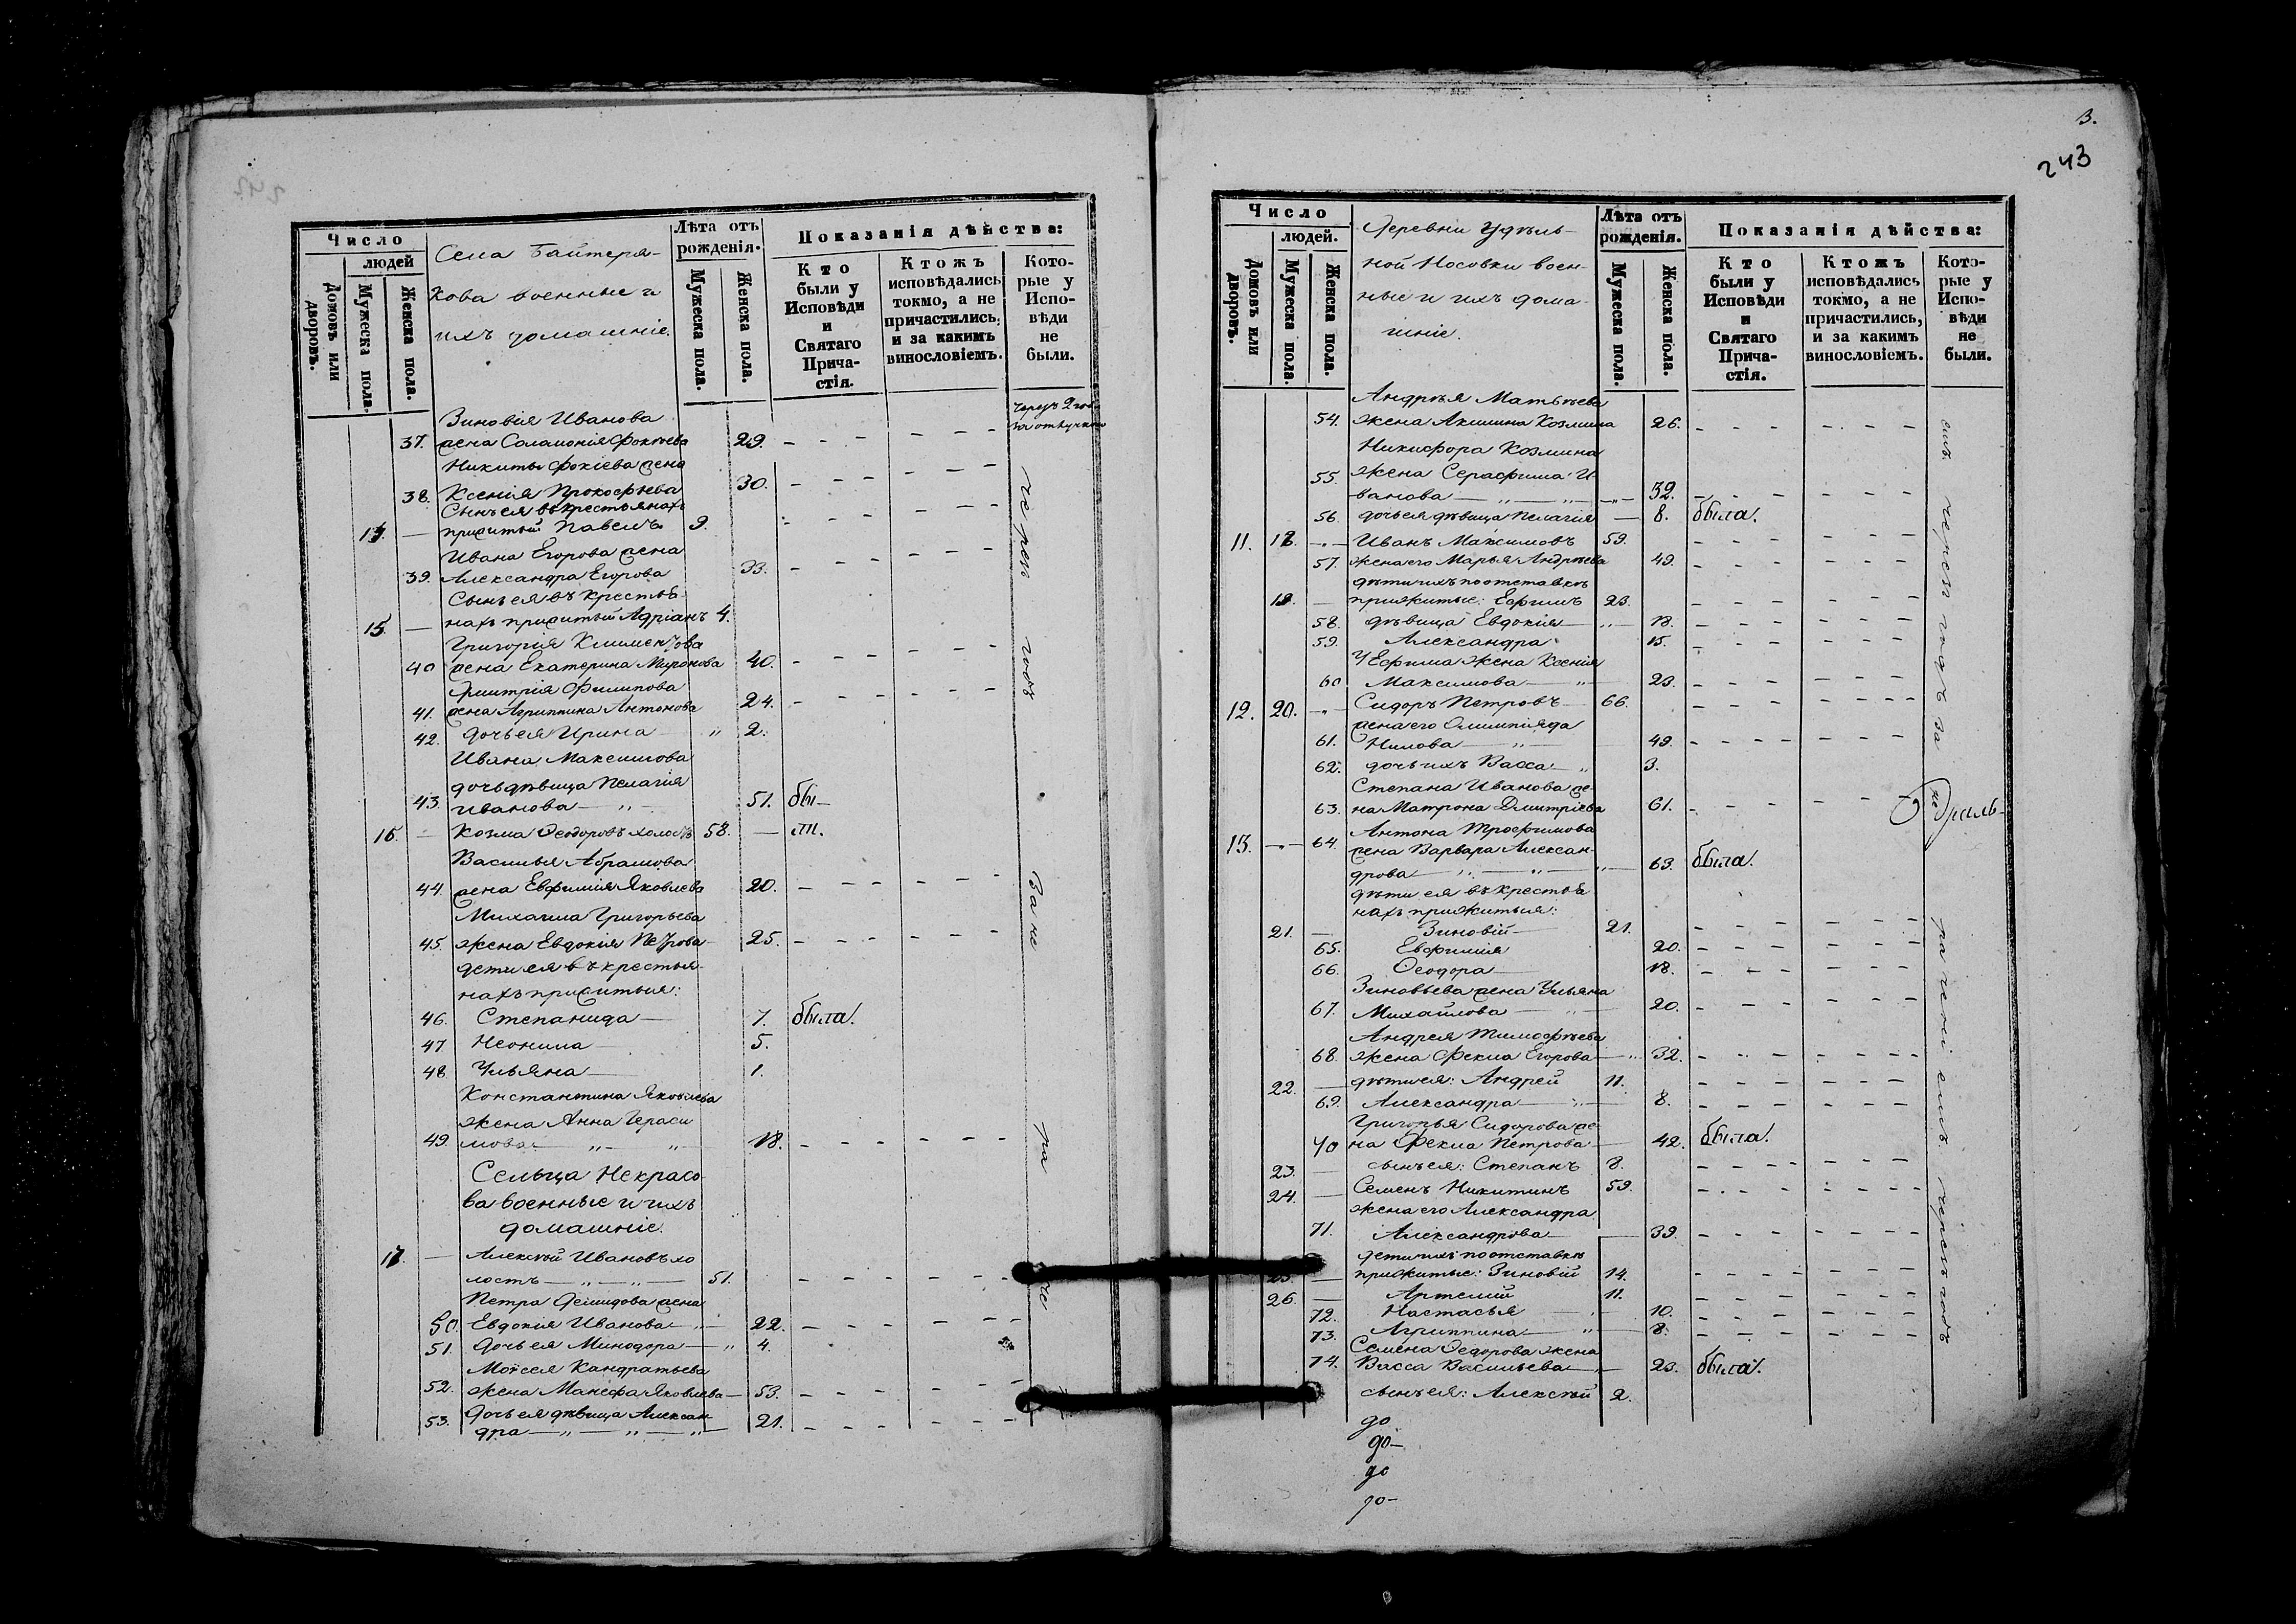 Число
людей
Домовъ или дворовъ.
Мужеска пола.
Женска пола.
Села Байтеря-
кова военные и
ихъ домашніе.
Лѣта отъ рожденія.
Мужеска пола.
Женска пола.
Показанія дѣйства:
Кто были у Исповѣди и Святаго Прича-стія.
Ктожъ исповѣдались токмо, а не причастились, и за какимъ винословіемъ.
Кото-рые у Испо-вѣди не были.
Зиновія Иванова
37. жена Соломонія Фокѣева 29.
Никиты Фокіева жена
38. Ксенія Прокофьева 30.
Сынъ ея въ крестьянахъ
14. — прижитый Павелъ 9.
Ивана Егорова жена
39. Александра Егорова 33.
Сынъ ея въ крестья-
15. — нахъ прижитый Адріанъ 4.
Григорія Климентова
40 жена Екатерина Миронова 40.
Дмитрія Филипова
41. жена Агриппина Антонова 24.
42. Дочь ея Ирина — „ 2.
Ивана Максимова
дочь дѣвица Пелагія
43. Иванова — „ — 51. бы-
16. — Козма Ѳеодоровъ холостъ 58. — ли.
Василья Абрамова
44. жена Евфимія Яковлева 20.
Михаила Григорьева
45. жена Евдокія Петрова 25.
дети ея въ крестья-
нахъ прижитыя:
46. Степанида — 7. была.
47 Неонила — 5.
48 Ульяна — 1.
Константина Яковлева
жена Анна Гераси
49. мова — „ — „ 18.
Сельца Некрасо-
ва военные и ихъ
домашніе.
17. — Алексѣй Ивановъ хо
лостъ — „ — „ — 51.
Петра Демидова жена
50. Евдокия Иванова — „ — 22.
51. Дочь ея Минодора — „ 4.
Моисея Кандратьева
52. жена Манефа Яковлева — 53.
53. Дочь ея дѣвица Алексан
дра — „ — „ — „ 21.
чрезъ годъ За не
3.
243
Число
людей.
Домовъ или дворовъ.
Мужеска пола.
Женска пола.
Деревни Удѣль-
ной Носовки воен-
ные и ихъ дома-
шніе.
Лѣта отъ рожденія.
Мужеска пола.
Женска пола.
Показанія дѣйства:
Кто были у Исповѣди и Святаго Прича-стія.
Ктожъ исповѣдались токмо, а не причастились, и за какимъ винословіемъ.
Кото-рые у Испо-вѣди не были.
Андрѣя Матвѣева
54. жена Акилина Козмина 26.
Никифора Козмина
55. жена Серафима И-
ванова — „ — „ — 32.
56. дочь ея дѣвица Пелагія — 8. была.
11. 18. — Иванъ Максимовъ 59.
57. жена его Марья Андрѣева 49.
дѣти ихъ по отставкѣ
19. — прижитые: Ефимъ 23.
58. дѣвица Евдокія — „ — 18.
59. Александра 15.
У Ефима жена Ксенія
60 Максимова — „ — 23.
12. 20. — Сидоръ Петровъ — 66.
жена его Олимпіяда
61. Нилова — „ — 49.
62. дочь ихъ Васса — „ 3.
Степана Иванова же-
63. на Матрона Дмитріева 61.
Антона Трофимова
13. — 64. жена Варвара Алексан-
дрова — „ — „ — 63. была.
дѣти ея въ крестья
нахъ прижитыя:
21. — Зиновій — 21.
65. Евфимія 20.
66. Ѳеодора — 18.
Зиновьева жена Ульяна
67. Михайлова — 20.
Андрея Тимофѣева
68. жена Фекла Егорова — „ 32.
22. — дѣти ея: Андрей 11.
69. Александра — „ — 8.
Григорья Сидорова же
70 на Фекла Петрова — 42. была.
23. — сынъ ея: Степанъ 8.
24. — Семенъ Никитинъ 59.
жена его Александра
71. Александрова — 39.
дети ихъ по отставкѣ
25. — прижитые: Зиновій 14.
26. — Артемій 11.
72. Настасья — 10.
73. Агриппина — „ — 8.
Семена Ѳедорова жена
74. Васса Васильева — „ — 23. была.
сынъ ея: Алексѣй 2.
до
до-
до
до-
чрезъ годъ за
чрезъ годъ